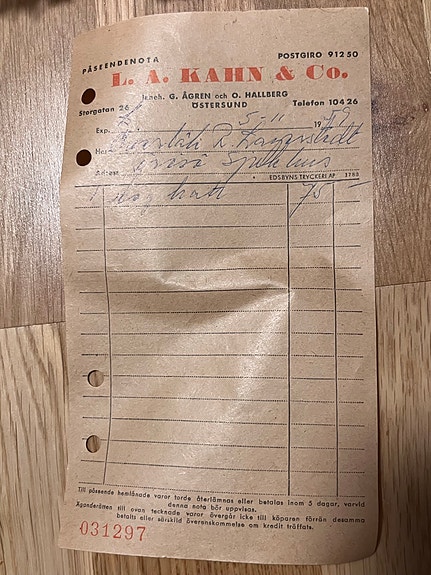 PÅSEENDENOTA POSTGIRO 912 50
L. A. KAHN & Co.
Inneh. G. ÅGREN och O. HALLBERG
Storgatan 26 ÖSTERSUND Telefon 104 26
Exp. 5-11 19
Herr R. Lagerstedt
Adress Sjukhus
EDSBYNS TRYCKERI AP 3780
1 hatt 75
Till påseende hemlånade varor torde återlämnas eller betalas inom 5 dagar, varvid
denna nota bör uppvisas.
Äganderätten till ovan tecknade varor övergår icke till köparen förrän desamma
betalts eller särskild överenskommelse om kredit träffats.
031297